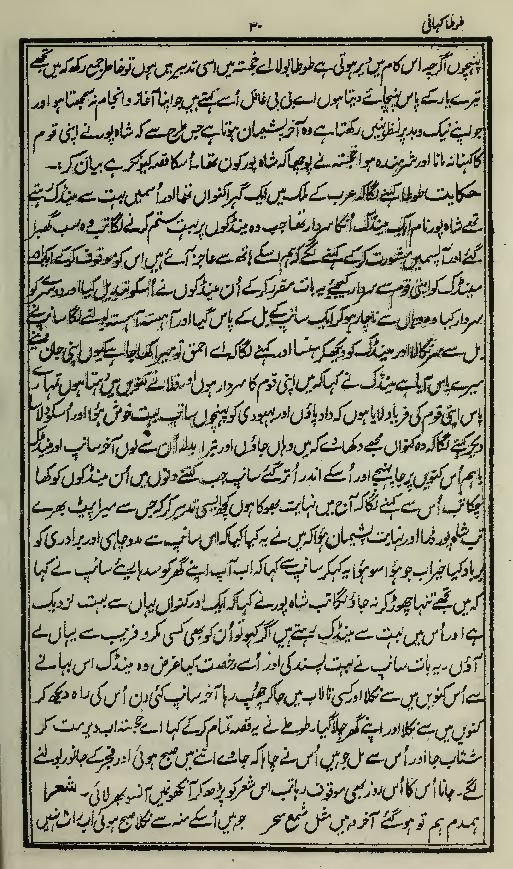 طوطا کہانی ۳۰
پہنچوں اگرچہ اس کام میں دیر ہوتی ہے طوطا بولا اے خجستہ میں اسی تدبیر میں ہوں تو خاطر جمع رکھ کہ میں تجھے
تیرے یار کے پاس پہنچائے دیتا ہوں اے بی بی عاقل اُسے کہتے ہیں جو اپنا آغاز و انجام نہ سمجھتا ہو اور
جو اپنے نیک و بد پر نظر نہیں رکھتا ہے وہ آخر پشیمان ہوتا ہے جس طرح سے کہ شاہ پور نے اپنی قوم
کا کہنا نہ مانا اور شرمندہ ہوا خجستہ نے پوچھا کہ شاہ پور کون تھا اُسکا قصہ کیونکر ہے بیان کر:-
حکایت طوطا کہنے لگا کہ عرب کے ملک میں ایک گہرا کنواں تھا اور اُسمیں بہت سے مینڈک رہتے
تھے شاہ پور نام ایک مینڈک اُنکا سردار تھا جب وہ مینڈکوں پر بہت ستم کرنے لگا تب وہ سب گھبرا
گئے اور آپسمیں مشورت کرکے کہنے لگے کہ ہم اسکے ہاتھ سے عاجز آئے ہیں اس کو موقوف کرکے ایک
مینڈک کو اپنی قوم سے سردار کیجئے یہ بات مقرر کرکے اُن مینڈکوں نے اُسکو تبدیل کیا اور دوسرے کو
سردار کیا وہ وہاں سے ناچار ہو کر ایک سانپ کے بل کے پاس گیا اور آہستہ آہستہ بولنے لگا سانپ نے
بل سے سر نکالا اور مینڈک کو دیکھ کر ہنسا اور کہنے لگا کہ اے احمق تو میرا کھاجا ہے کیوں اپنی جان
میرے پاس آیا ہے مینڈک نے کہا کہ میں اپنی قوم کا سردار ہوں اور فلانے کنویں میں رہتا ہوں تمہارے
پاس اپنی قوم کی فریاد لایا ہوں کہ داد پاؤں اور بہبودی کو پہنچوں سانپ بہت خوش ہوا اور اُسکو دلاسا
دیکر کہنے لگا کہ وہ کنواں مجھے دکھا دے کہ میں وہاں جاؤں اور تیرا بدلہ اُن سے لوں آخر سانپ اور مینڈک
باہم اُس کنویں پر جا پہنچے اور اُسکے اندر اُتر گئے سانپ جب کتنے دنوں میں اُن مینڈکوں کو کھا
چکا تب اُس سے کہنے لگا کہ آج میں نہایت بھوکا ہوں کچھ ایسی تدبیر کر کہ جس سے میرا پیٹ بھرے
تب شاہ پور ڈرا اور نہایت پشیمان ہوا کہ میں نے یہ کیا کیا کہ اس سانپ سے مدد چاہی اور برادری کو
برباد کیا خیر اب جو ہوا سو ہوا یہ کہہ کر سانپ سے کہا کہ اب آپ اپنے گھر کو سدھاریئے سانپ نے کہا
کہ میں تجھے تنہا چھوڑ کر نہ جاؤنگا تب شاہ پور نے کہا کہ ایک اور کنواں یہاں سے بہت نزدیک
ہے اور اُس میں بہت سے مینڈک رہتے ہیں اگر کہو تو اُن کو بھی کسی مکر و فریب سے یہاں لے
آؤں۔ یہ بات سانپ نے بہت پسند کی اور اُسے رخصت کیا غرض وہ مینڈک اس بہانے
سے اُس کنویں میں سے نکلا اور کسی تالاب میں جا کر چھپ رہا آخر سانپ کئی دن اُس کی راہ دیکھ کر
کنویں میں سے نکلا اور اپنے گھر چلا گیا طوطے نے یہ قصہ تمام کرکے کہا اے خجستہ اب دیر مت کر
شتاب جا اور اُس سے مل جو ہیں اُس نے چاہا کہ جاوے اتنے میں صبح ہوئی اور فجر کے جانور بولنے
لگے۔ جانا اُس کا اُس روز بھی موقوف رہا تب اس شعر کو پڑھ کر آنکھوں میں آنسو بھر لائی۔ شعر
ہمدم ہم تو ہو گئے آخر وہیں مثل شمع سحر جوہیں اُسکے منہ سے نکلا صبح ہوئی اب رات نہیں